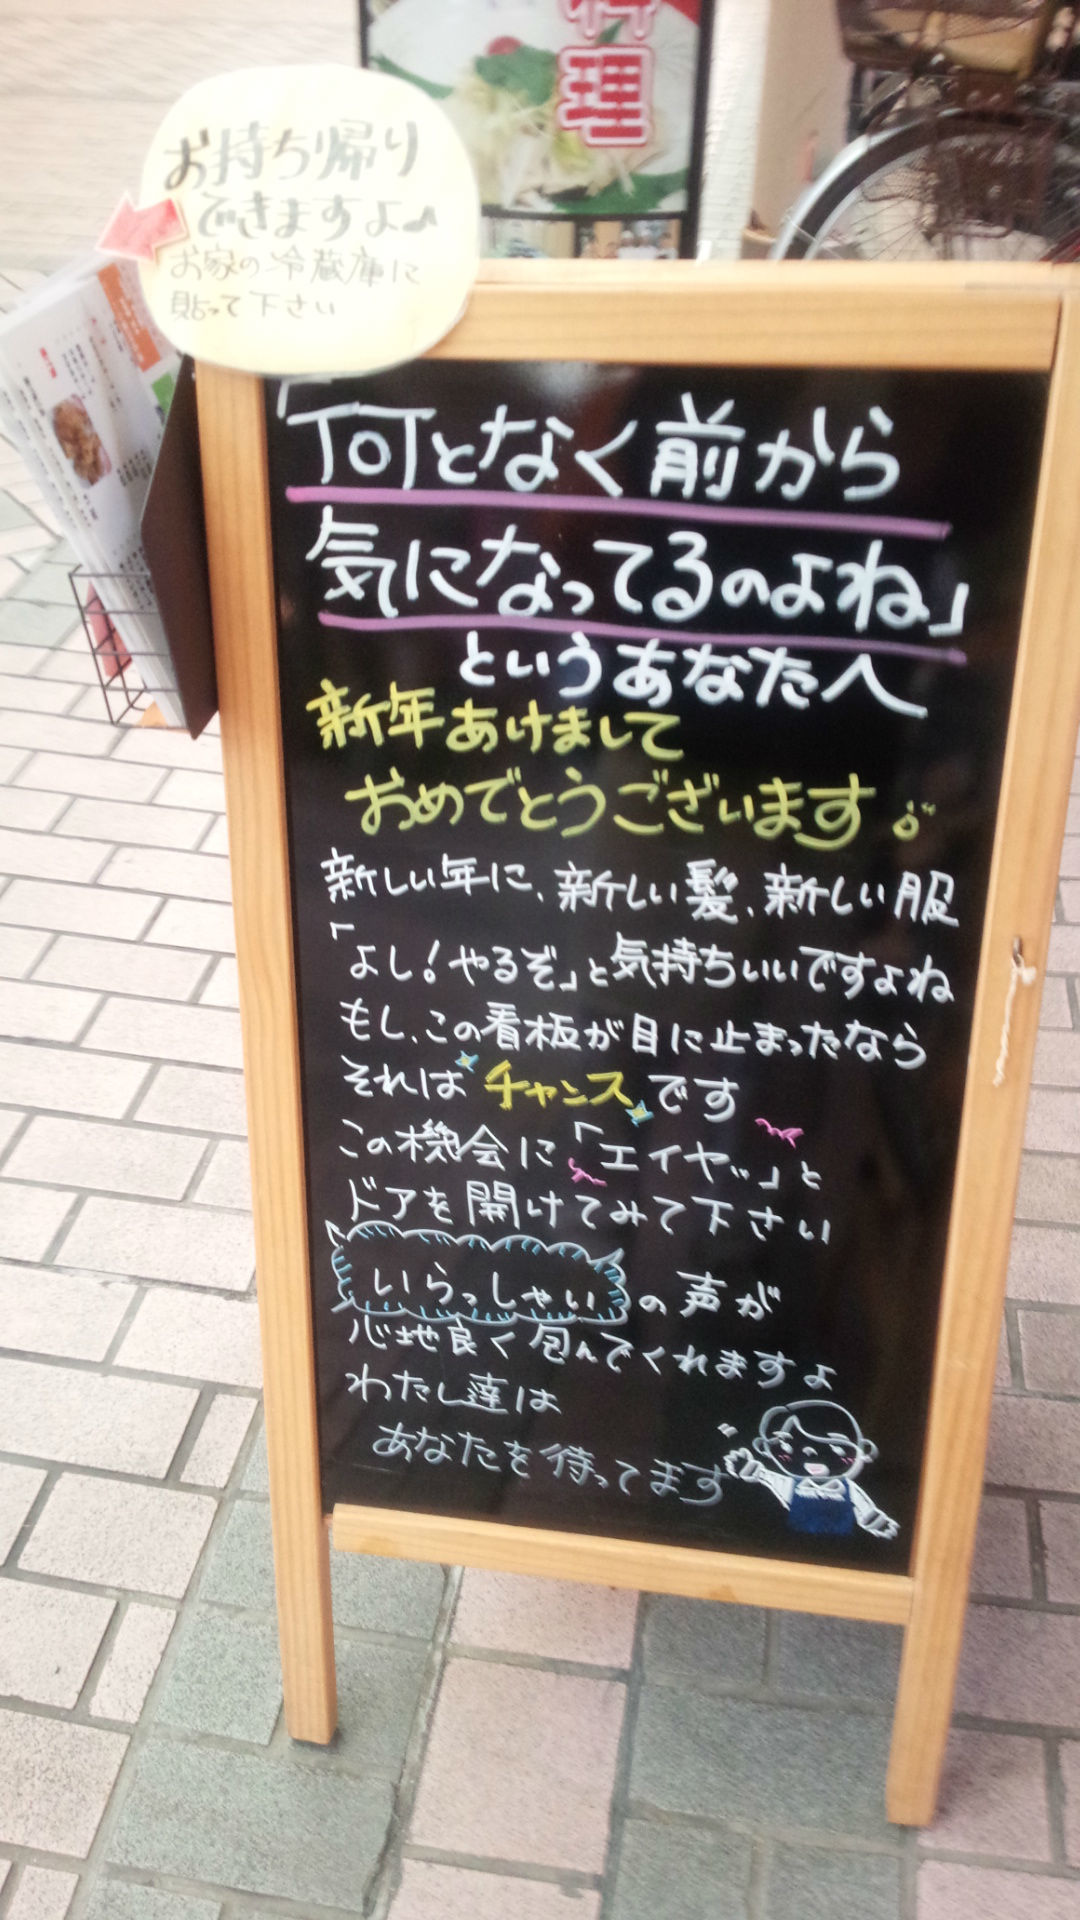 料理
お持ち帰り
できますよ♪
お家の冷蔵庫に
貼って下さい
「何となく前から
気になってるのよね」
というあなたへ
新年あけまして
おめでとうございます
新しい年に、新しい髪、新しい服
「よし!やるぞ」と気持ちいいですよね
もし、この看板が目に止まったなら
それはチャンスです
この機会に「エイヤッ」と
ドアを開けてみて下さい
いらっしゃいの声が
心地良く包んでくれますよ
わたし達は
あなたを待ってます